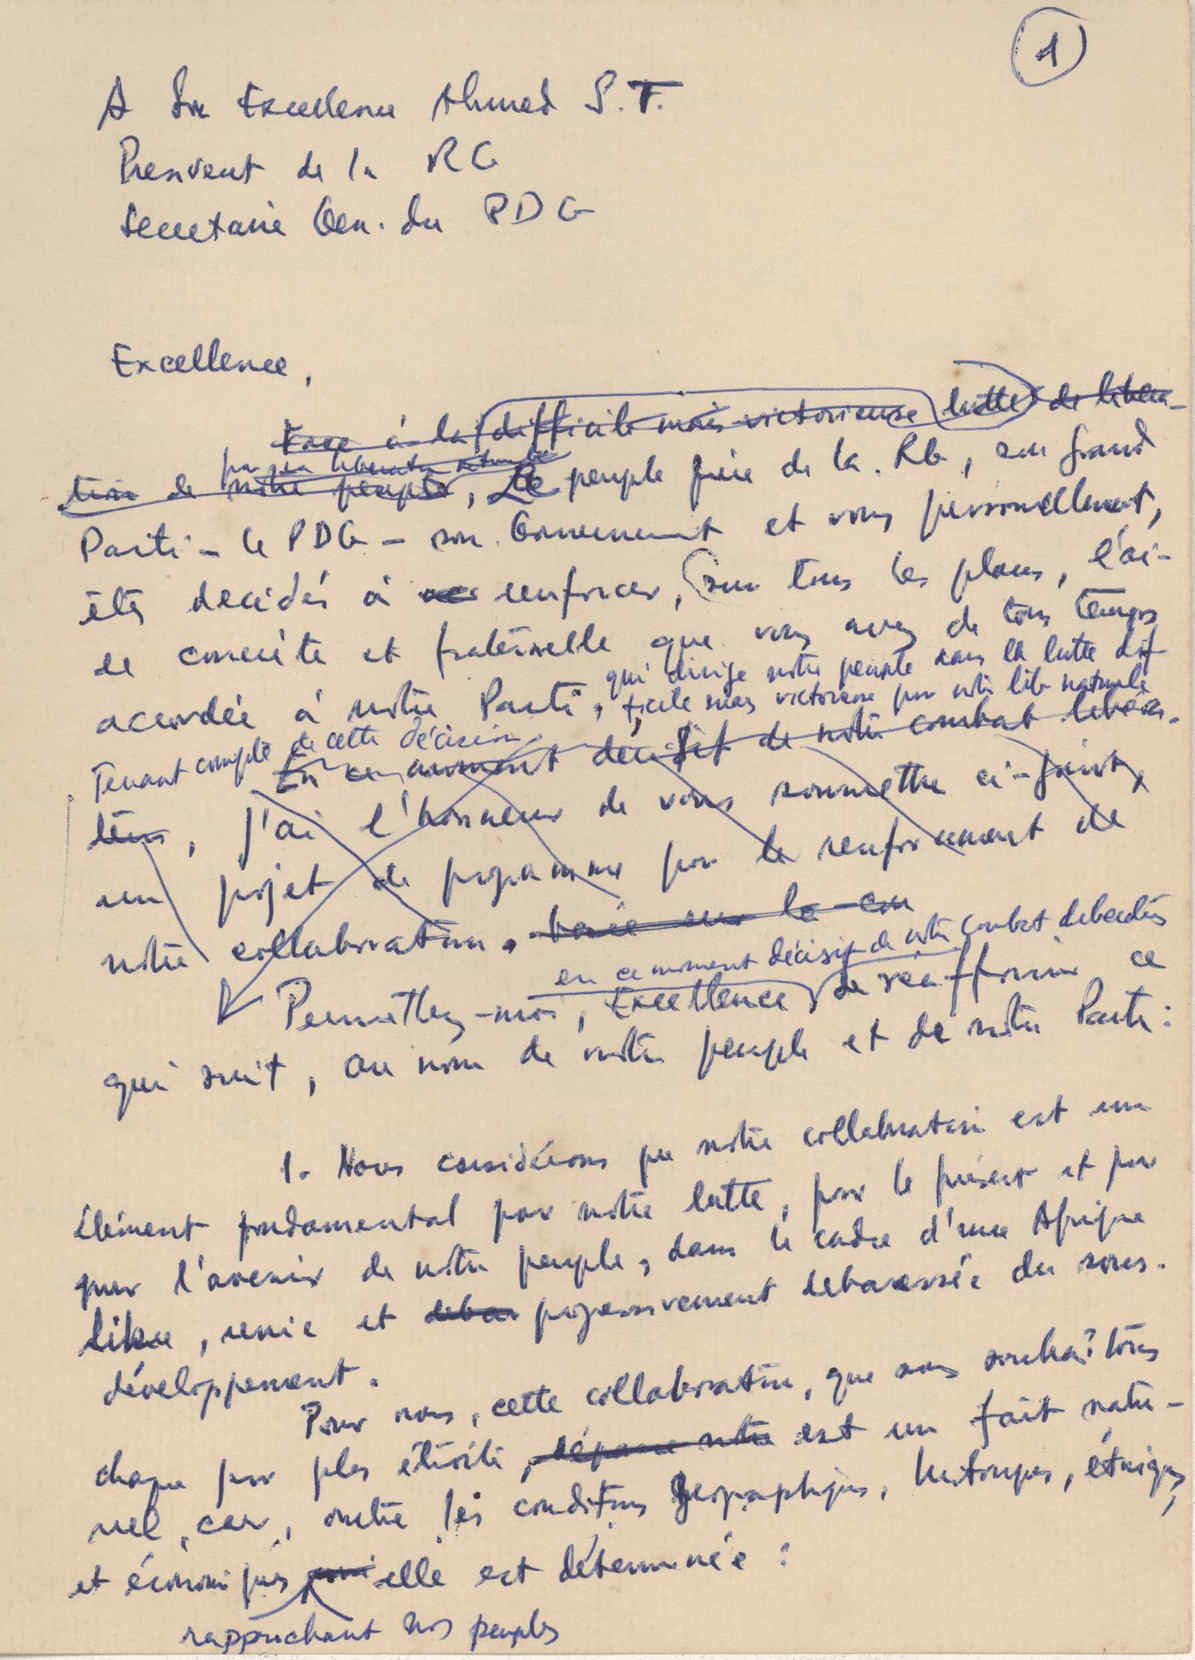 1
A Son Excellence Ahmed S.T.
President de la RG
Secretaire Gen. du PDG
Excellence,
Face à la difficile mais victorieuse lutte de libéra-
par sa libération nationale
tion de notre peuple, Le peuple frère de la RG, son grand
Parti - le PDG - son Gouvernement et vous personnellement,
êtes decidés à renforcer, sur tous les plans, l'ai-
de concrète et fraternelle que vous avez de tous temps
qui dirige notre peuple dans la lutte dif-
acordée à notre Parti, ficile mais victorieuse pour notre lib. nationale
Tenant compte de cette décision
En ce moment décisif de notre combat libéra-
teur, j'ai l'honneur de vous soumettre ci-joint,
un projet de programme pour le renforcement de
notre collaboration. basée sur la con
en ce moment décisif de notre combat liberateur
Permettez-moi, Excellence de réaffirmer ce
qui suit, au nom de notre peuple et de notre Parti:
1. Nous considérons que notre collaboration est un
élément fondamental pour notre lutte, pour le présent et pour
pour l'avenir de notre peuple, dans le cadre d'une Afrique
libre, unie et debar progressivement debarassée du sous-
développement.
Pour nous, cette collaboration, que nous souhaitons
chaque jour plus étroite, dépasse notre est un fait natu-
rel, car, outre les conditions géographiques, historiques, étniques,
et économiques elle est déterminée :
rapprochant nos peuples